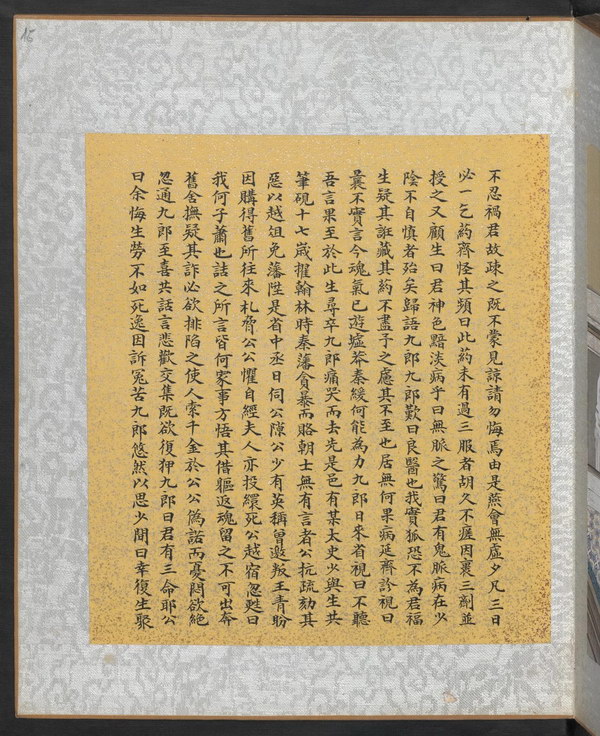 15
不忍禍君故疎之既不蒙見諒請勿悔焉由是燕會無虛夕凡三日
必一乞葯齊怪其頻曰此葯未有過三服者胡久不瘥因裹三劑並
授之又顧生曰君神色黯淡病乎曰無脈之驚曰君有鬼脈病在少
陰不自慎者殆矣歸語九郎九郎歎曰良醫也我實狐恐不為君福
生疑其誑藏其葯不盡予之慮其不至也居無何果病延齊診視曰
曩不實言今魂氣已遊墟莽秦緩何能為力九郎日來省視曰不聽
吾言果至於此生尋卒九郎痛哭而去先是邑有某太史少與生共
筆硯十七歲擢翰林時秦藩貪暴而賂朝士無有言者公抗疏劾其
惡以越俎免藩陞是省中丞日伺公隙公少有英稱曾邀叛王青盼
因購得舊所往來札脅公公懼自經夫人亦投繯死公越宿忽甦曰
我何子蕭也詰之所言皆何家事方悟其借軀返魂留之不可出奔
舊舍撫疑其詐必欲排陷之使人索千金於公公偽諾而憂悶欲絕
忽通九郎至喜共話言悲歡交集既欲復狎九郎曰君有三命耶公
曰余悔生勞不如死逸因訴冤苦九郎悠然以思少間曰幸復生聚